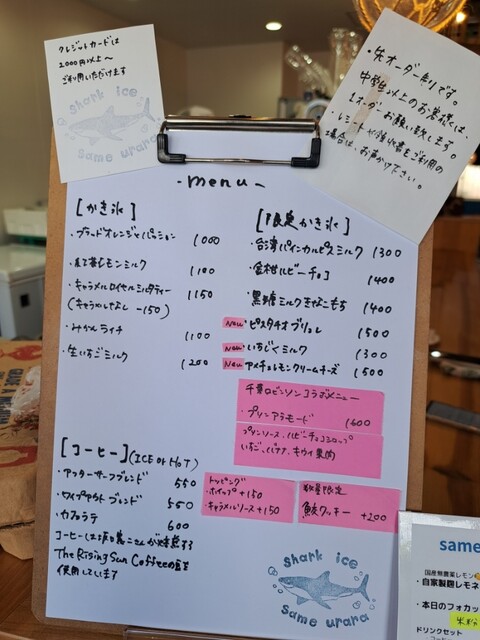 クレジットカードは
2000円以上〜
ご利用いただけます
shark ice
same urara
・先オーダー制です。
中学生以上のお客様は、
1オーダーお願い致します。
・レシートや領収書をご利用の
場合は、お声かけ下さい。
- menu -
[かき氷]
・ブラッドオレンジ×パッション 1000
・紅茶レモンミルク 1100
・キャラメルロイヤルミルクティー 1150
(キャラメルなし -150)
・みかんライチ 1100
・生いちごミルク 1200
[限定かき氷]
・台湾パインカルピスミルク 1300
・金柑ルビーチョコ 1400
・黒糖ミルクきなこもち 1400
New ・ピスタチオブリュレ 1500
New ・いちじくミルク 1300
New ・アメチェレモンクリームチーズ 1500
千葉ロビンソンコラボメニュー
・プリンアラモード 1600
プリンソース、ルビーチョコシロップ
いちご、バナナ、キウイ果肉
[コーヒー] (ICE or HOT)
・アフターサーフブレンド 550
・ワイプアウトブレンド 550
・カフェラテ 600
コーヒーは坂口憲二さんが焙煎する
The Rising Sun Coffeeの豆を
使用してます
トッピング
・ホイップ +150
・キャラメルソース +150
数量限定
鮫クッキー +200
shark ice
same urara
same
国産無農薬レモン
・自家製麹レモネ
・本日のフォカッ
米粉
ドリンクセット